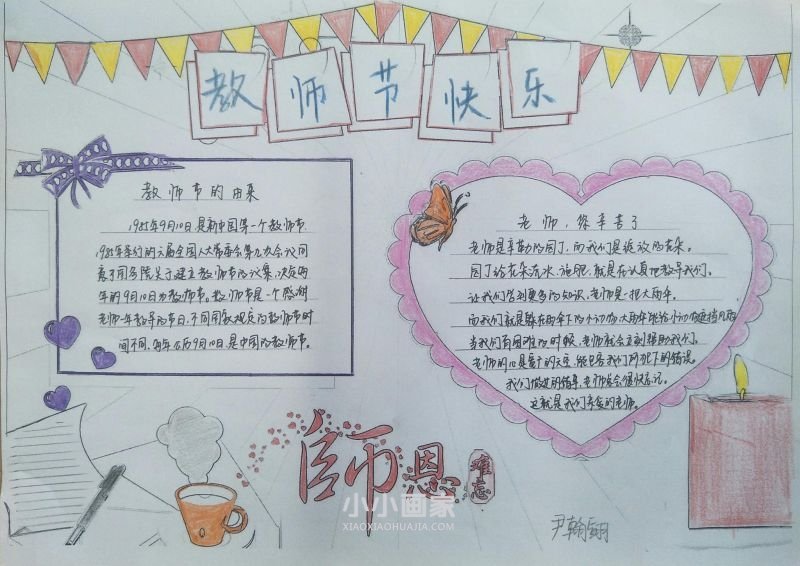 教师节快乐
教师节的由来
1985年9月10日,是新中国第一个教师节,
1985年举行的六届全国人大常委会第九次会议同
意了国务院关于建立教师节的议案,决定每
年的9月10日为教师节。教师节是一个感谢
老师一年教导的节日,不同国家规定的教师节时
间不同,每年的9月10日,是中国的教师节。
老师,您辛苦了
老师是辛勤的园丁,而我们是绽放的花朵。
园丁给花朵浇水、施肥,就是在认真地教导我们。
让我们学到更多的知识,老师是一把大雨伞。
而我们就是躲在雨伞下的小动物
当我们有困难的时候,老师就会立刻帮助我们。
老师的心是宽广的大海,能容我们所犯下的错误。
我们做过的错事,老师总会很快忘记。
这就是我们亲爱的老师。
師恩
难忘
小小画家
XIAOXIAOHUAJIA.COM
尹翰翮